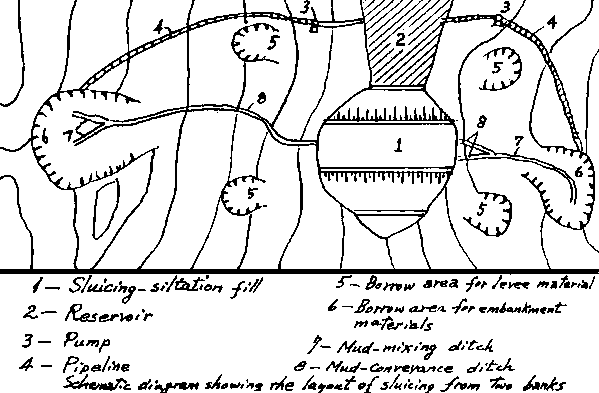 4 3 3 4
2
5 5
8 8
6 7 1 7 6
5 5
1 — Sluicing-siltation fill
2 — Reservoir
3 — Pump
4 — Pipeline
5 — Borrow area for levee material
6 — Borrow area for embankment
materials
7 — Mud-mixing ditch
8 — Mud-conveyance ditch
Schematic diagram showing the layout of sluicing from two banks